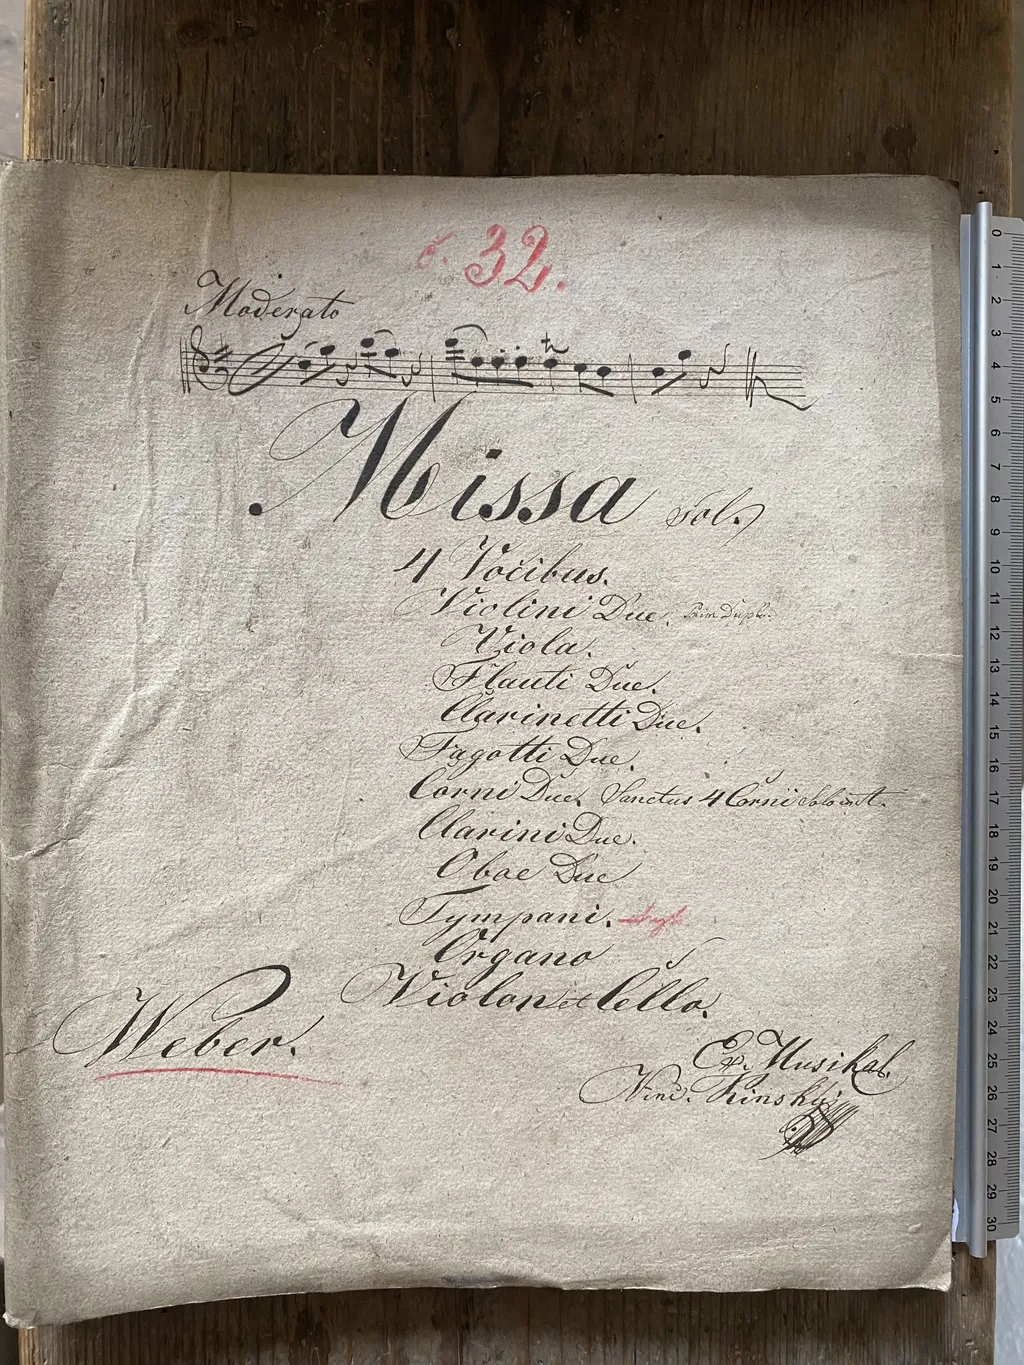 č. 32.
Moderato
Missa Sol.
4 Vocibus.
Violini Due.
Viola.
Flauti Due.
Clarinetti Due.
Fagotti Due.
Corni Due. Sanctus 4 Corni
Clarini Due.
Oboe Due
Tympani.
Organo
Violon et Cello.
Weber.
Ex. Musikal.
Vinc. Kinský
0
1
2
3
4
5
6
7
8
9
10
11
12
13
14
15
16
17
18
19
20
21
22
23
24
25
26
27
28
29
30